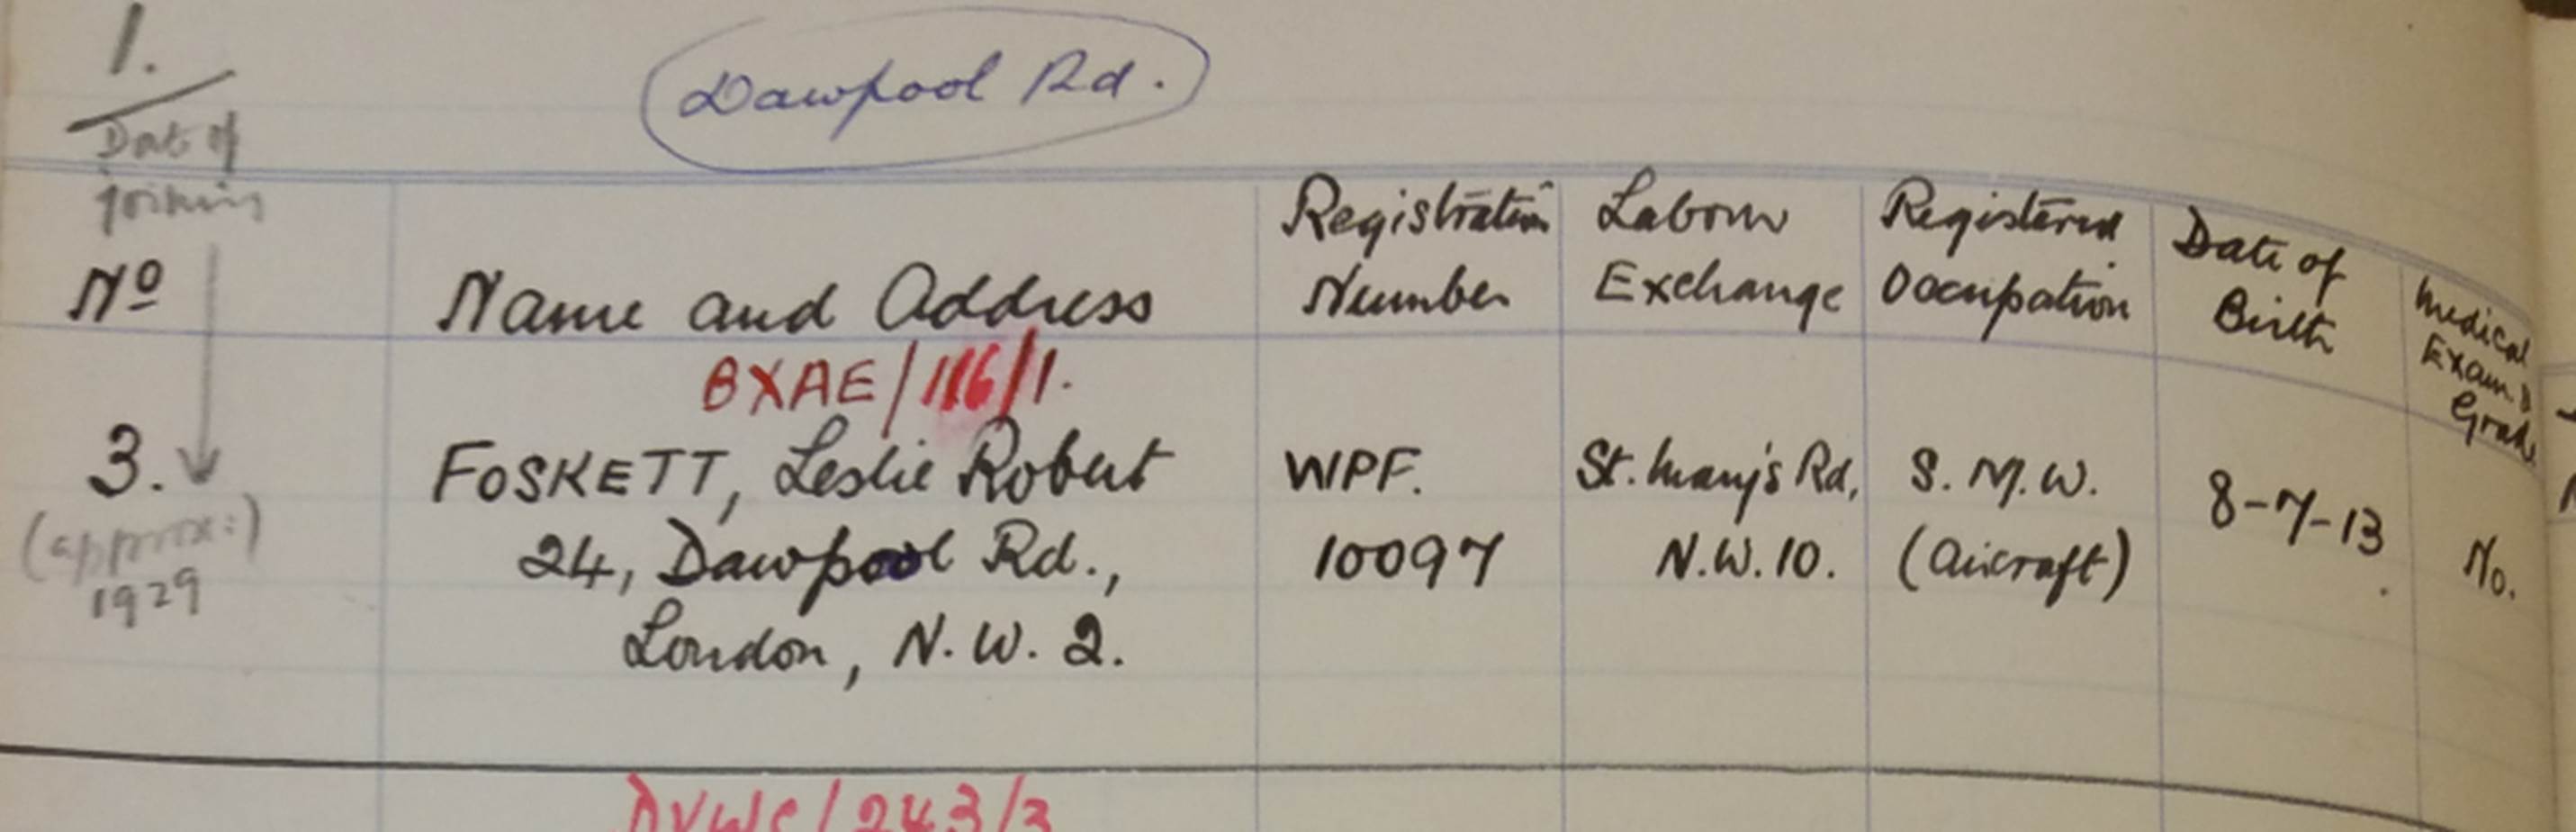 1.
Dawpool Rd.
Date of
joining
No
Name and Address
Registration
Number
Labour
Exchange
Registered
Occupation
Date of
Birth
Medical
Exam &
Grade
BXAE/116/1.
3.
(approx:)
1929
FOSKETT, Leslie Robert
24, Dawpool Rd.,
London, N.W. 2.
WPF.
10097
St. Mary's Rd,
N.W. 10.
S. M. W.
(Aircraft)
8-7-13
No.
/243/3